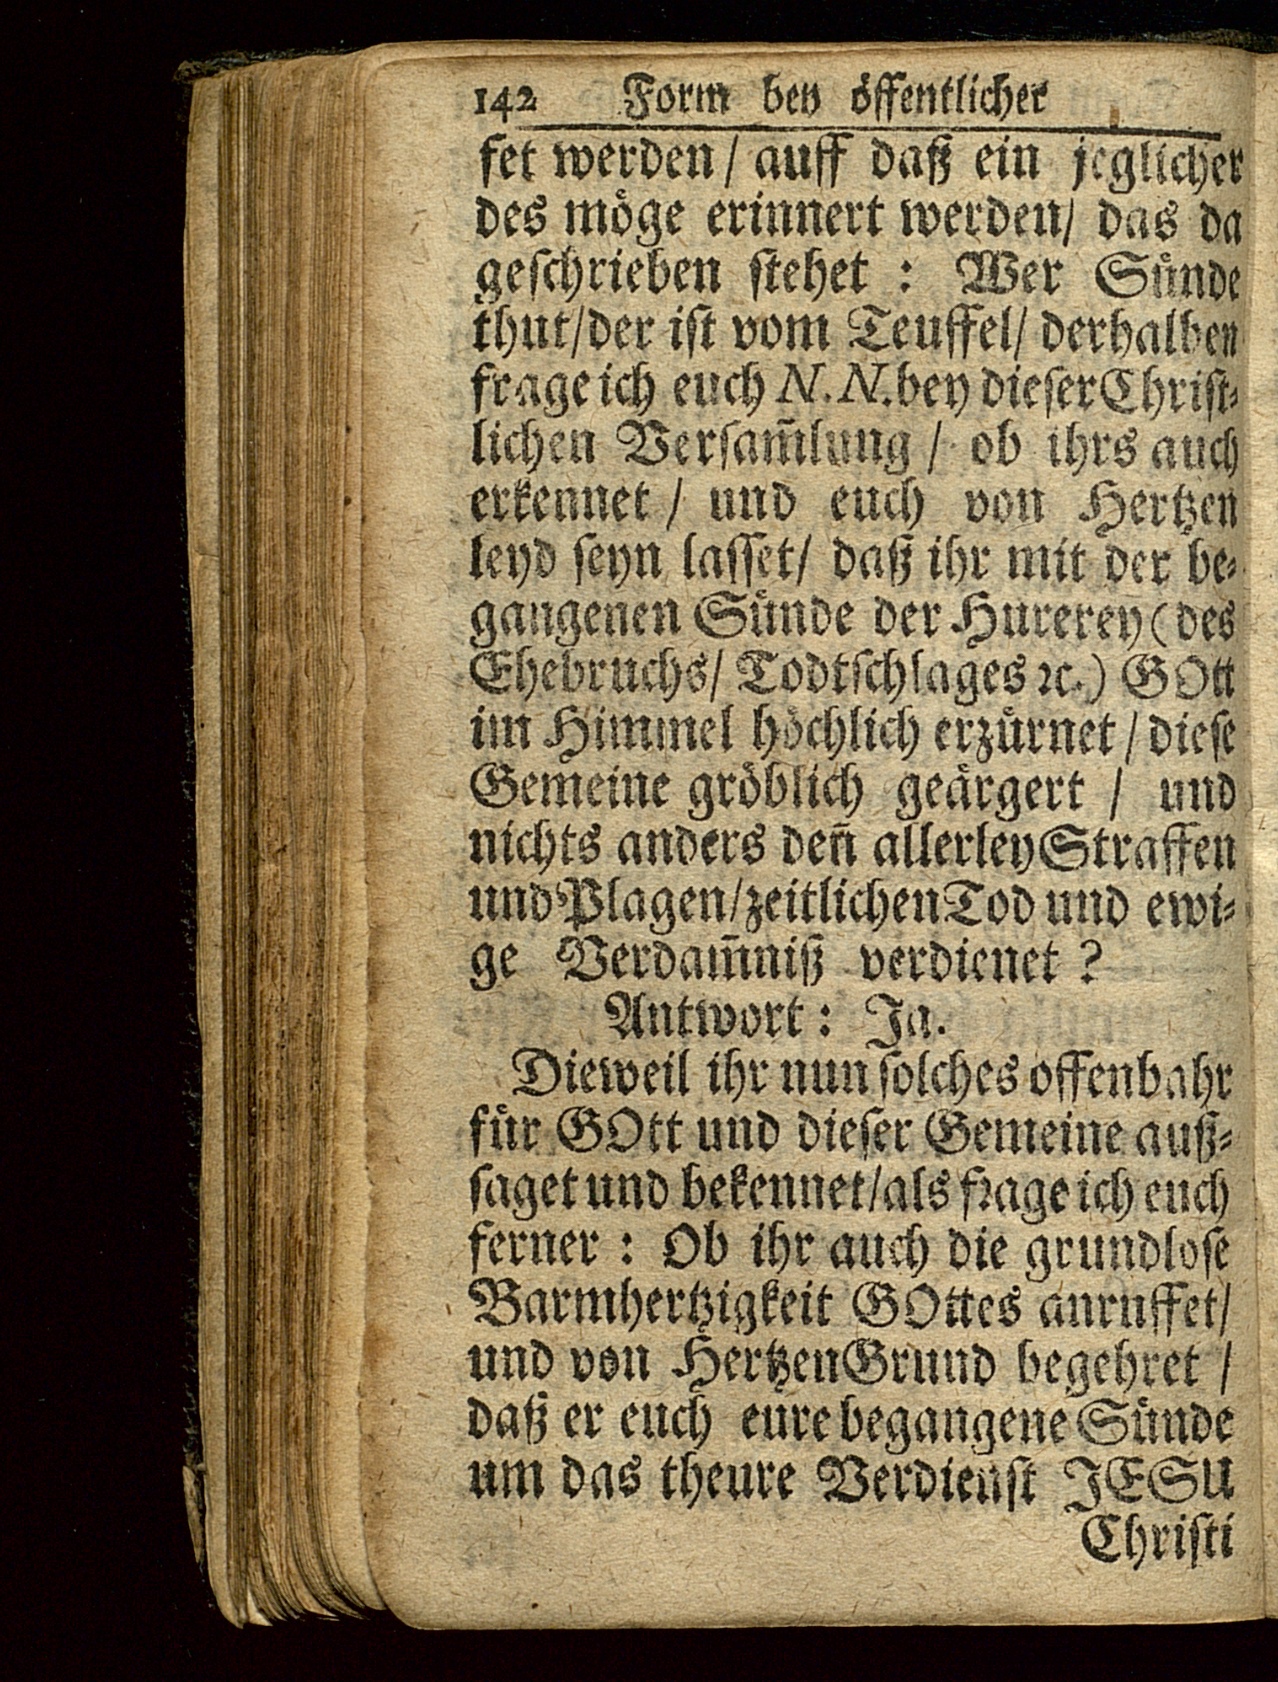 142 Form bey öffentlicher
fet werden / auff daß ein jeglicher
des möge erinnert werden / das da
geſchrieben ſtehet : Wer Sünde
thut / der iſt vom Teuffel / derhalben
frage ich euch N. N. bey dieſer Chriſt⸗
lichen Verſam̃lung / ob ihrs auch
erkennet / und euch von Hertzen
leyd ſeyn laſſet / daß ihr mit der be⸗
gangenen Sünde der Hurerey ( des
Ehebruchs / Todtſchlages ꝛc. ) GOtt
im Himmel höchlich erzürnet / dieſe
Gemeine gröblich geärgert / und
nichts anders den̄ allerley Straffen
und Plagen / zeitlichen Tod und ewi⸗
ge Verdam̃niß verdienet ?
Antwort : Ja.
Dieweil ihr nun ſolches offenbahr
für GOtt und dieſer Gemeine auß⸗
ſaget und bekennet / als frage ich euch
ferner : Ob ihr auch die grundloſe
Barmhertzigkeit GOttes anruffet /
und von Hertzen Grund begehret /
daß er euch eure begangene Sünde
um das theure Verdienſt JESU
Chriſti